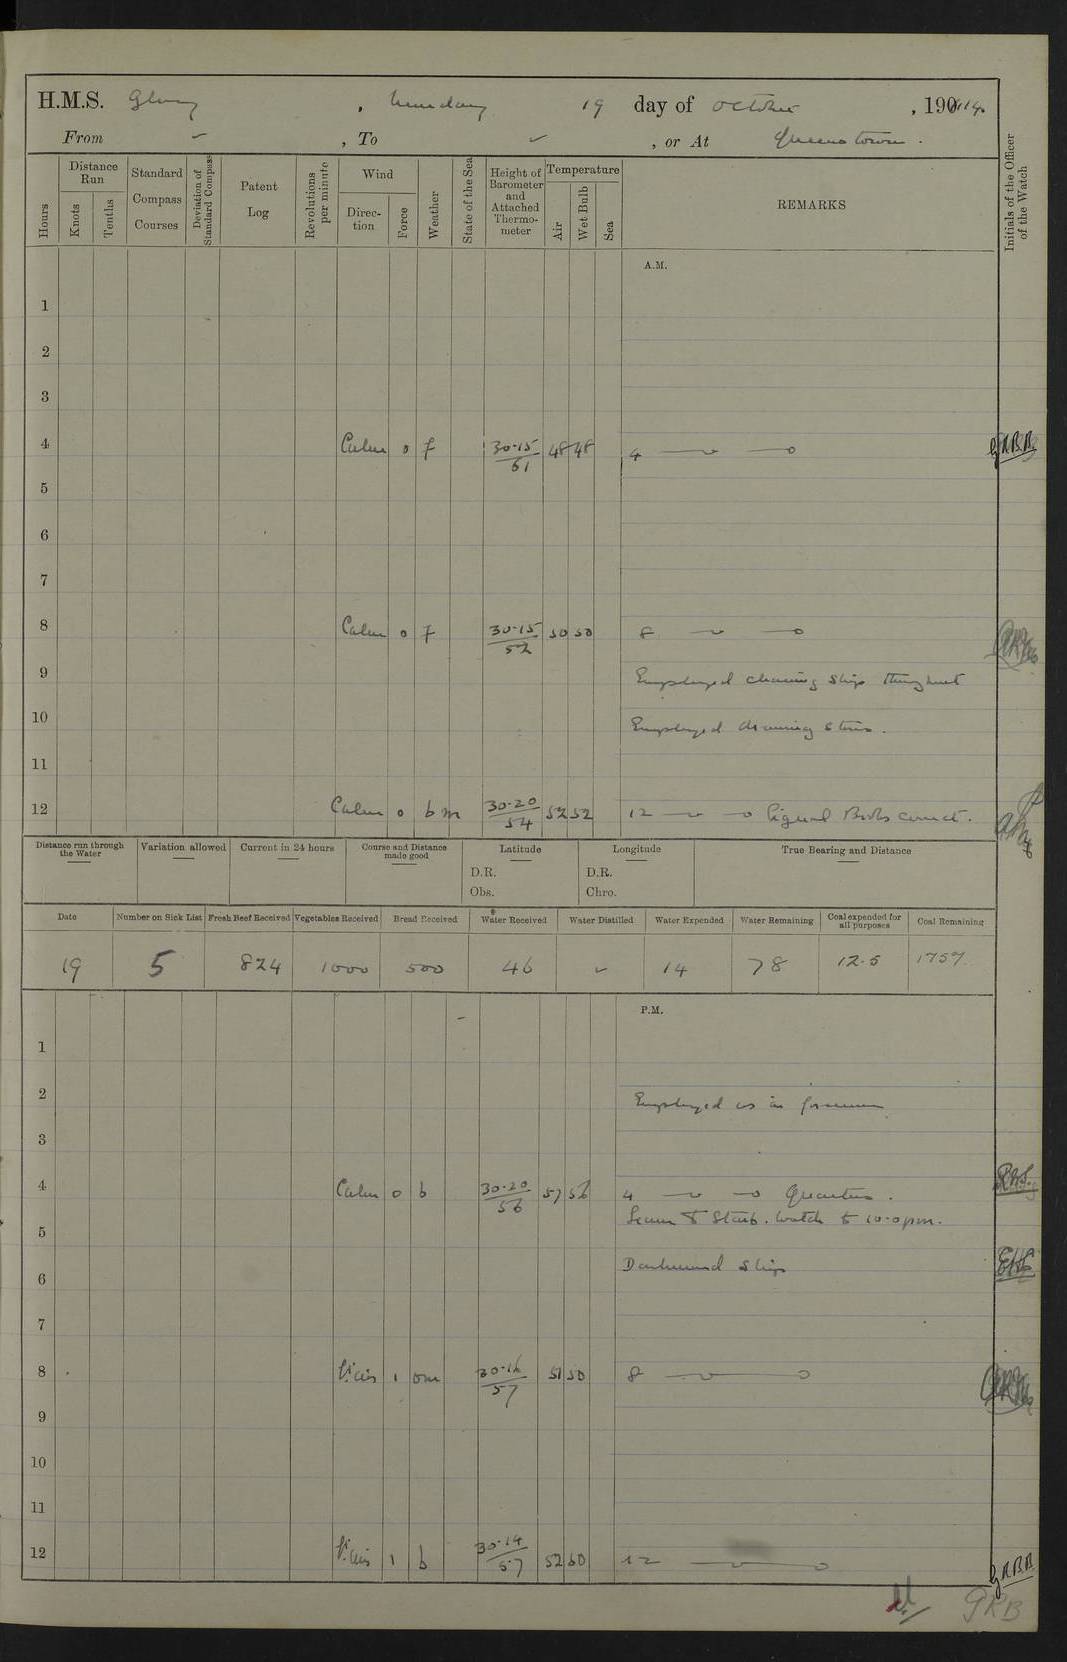 H.M.S. Glory, Monday 19 day of October, 1914.
From –, To ✓, or At Queenstown.
Hours
Distance Run
Knots
Tenths
Standard Compass Courses
Deviation of Standard Compass
Patent Log
Revolutions per minute
Wind
Direction
Force
Weather
State of the Sea
Height of Barometer and Attached Thermometer
Temperature
Air
Wet Bulb
Sea
REMARKS
Initials of the Officer of the Watch
A.M.
1
2
3
4 Calm 0 f 30·15/61 48 48 4 G.R.B.B.
5
6
7
8 Calm 0 f 30·15/52 50 50 8
9 Employed cleaning ship throughout
10 Employed drawing stores.
11
12 Calm 0 b m 30·20/54 52 52 12 Signal Books correct.
Distance run through the Water
Variation allowed
Current in 24 hours
Course and Distance made good
Latitude
D.R.
Obs.
Longitude
D.R.
Chro.
True Bearing and Distance
Date Number on Sick List Fresh Beef Received Vegetables Received Bread Received Water Received Water Distilled Water Expended Water Remaining Coal expended for all purposes Coal Remaining
19 5 824 1000 500 46 ✓ 14 78 12·5 1757
P.M.
1
2 Employed as in forenoon
3
4 Calm 0 b 30·20/56 57 56 4 Quarters.
Leave to Starb. watch to 10·0 pm.
5
Darkened ship
6
7
8 1 om 30·16/57 51 50 8
9
10
11
12 1 b 30·14/57 52 50 12 G.R.B.B.
GRB